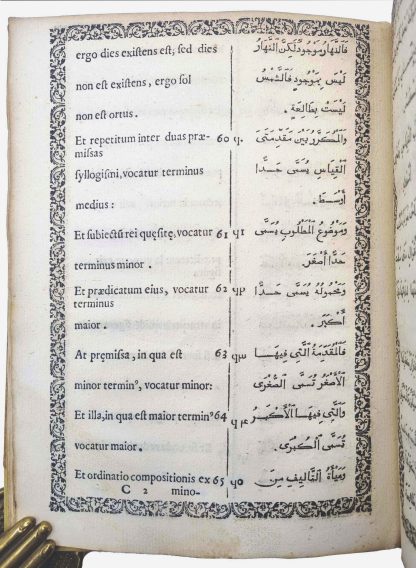 ergo dies existens est; sed dies
non est existens, ergo sol
non est ortus.
Et repetitum inter duas præ- 60
missas
syllogismi, vocatur terminus
medius:
Et subiectũ rei quęsitę, vocatur 61
terminus minor.
Et prædicatum eius, vocatur 62
terminus
maior.
At pręmissa, in qua est 63
minor termin⁹, vocatur minor:
Et illa, in qua est maior termin⁹ 64
vocatur maior.
Et ordinatio compositionis ex 65
C 2 mino-
فَالنَّهَارُ مَوْجُودٌ لَكِنَّ النَّهَارَ
لَيْسَ بِمَوْجُودٍ فَالشَّمْسُ
لَيْسَتْ بِطَالِعَةٍ
٦٠ وَالْمُكَرَّرُ بَيْنَ مُقَدِّمَتَيِ
الْقِيَاسِ يُسَمَّى حَدًّا
أَوْسَطَ.
٦١ وَمَوْضُوعُ الْمَطْلُوبِ يُسَمَّى
حَدًّا أَصْغَرَ
٦٢ وَمَحْمُولُهُ يُسَمَّى حَدًّا
أَكْبَرَ.
٦٣ فَالْمُقَدِّمَةُ الَّتِي فِيهَا
الْأَصْغَرُ تُسَمَّى الصُّغْرَى
٦٤ وَالَّتِي فِيهَا الْأَكْبَرُ
تُسَمَّى الْكُبْرَى.
٦٥ وَهَيْأَةُ التَّأْلِيفِ مِنَ